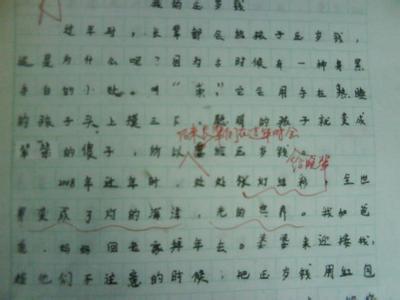 的压岁钱
过年时，长辈都会给孩子压岁钱，
这是为什么呢？因为古时候有一种身黑
手白的小妖，叫“祟”，它会用手在熟睡
的孩子头上摸三下，聪明的孩子就变成
后来长辈们在过年时会
笨笨的傻子，所以给压岁钱
给晚辈
2008年过年时，处处张灯结彩，全世
界变成了灯的海洋，光的世界。我和爸
爸、妈妈回老家拜年去。婆婆来迎接我，
趁他们不注意的时候，把压岁钱用红包